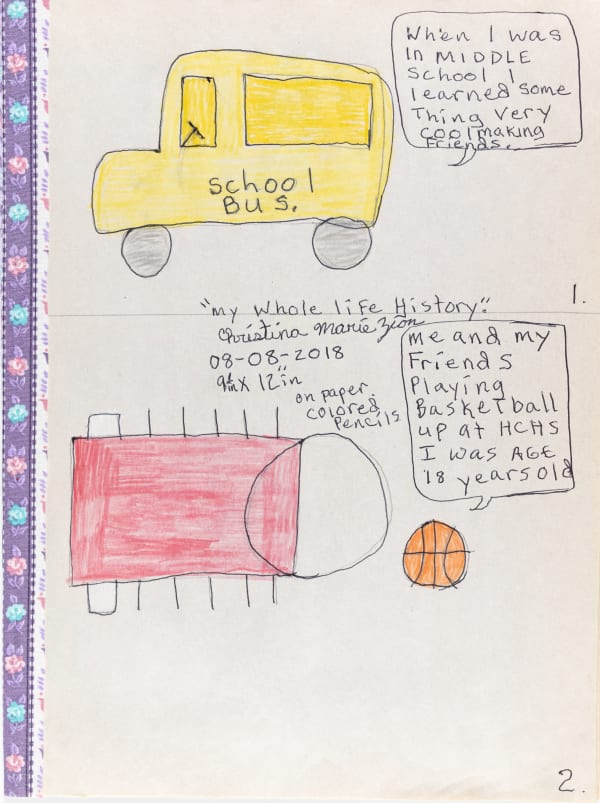 When I was
In MIDDLE
School I
learned some
Thing very
cool making
Friends.
School
Bus.
1.
"my Whole life History".
Christina Marie Zion
08-08-2018
9in x 12"in
on paper
colored
Pencils
me and my
Friends
Playing
Basketball
up at HCHS
I was AGE
18 years old
2.